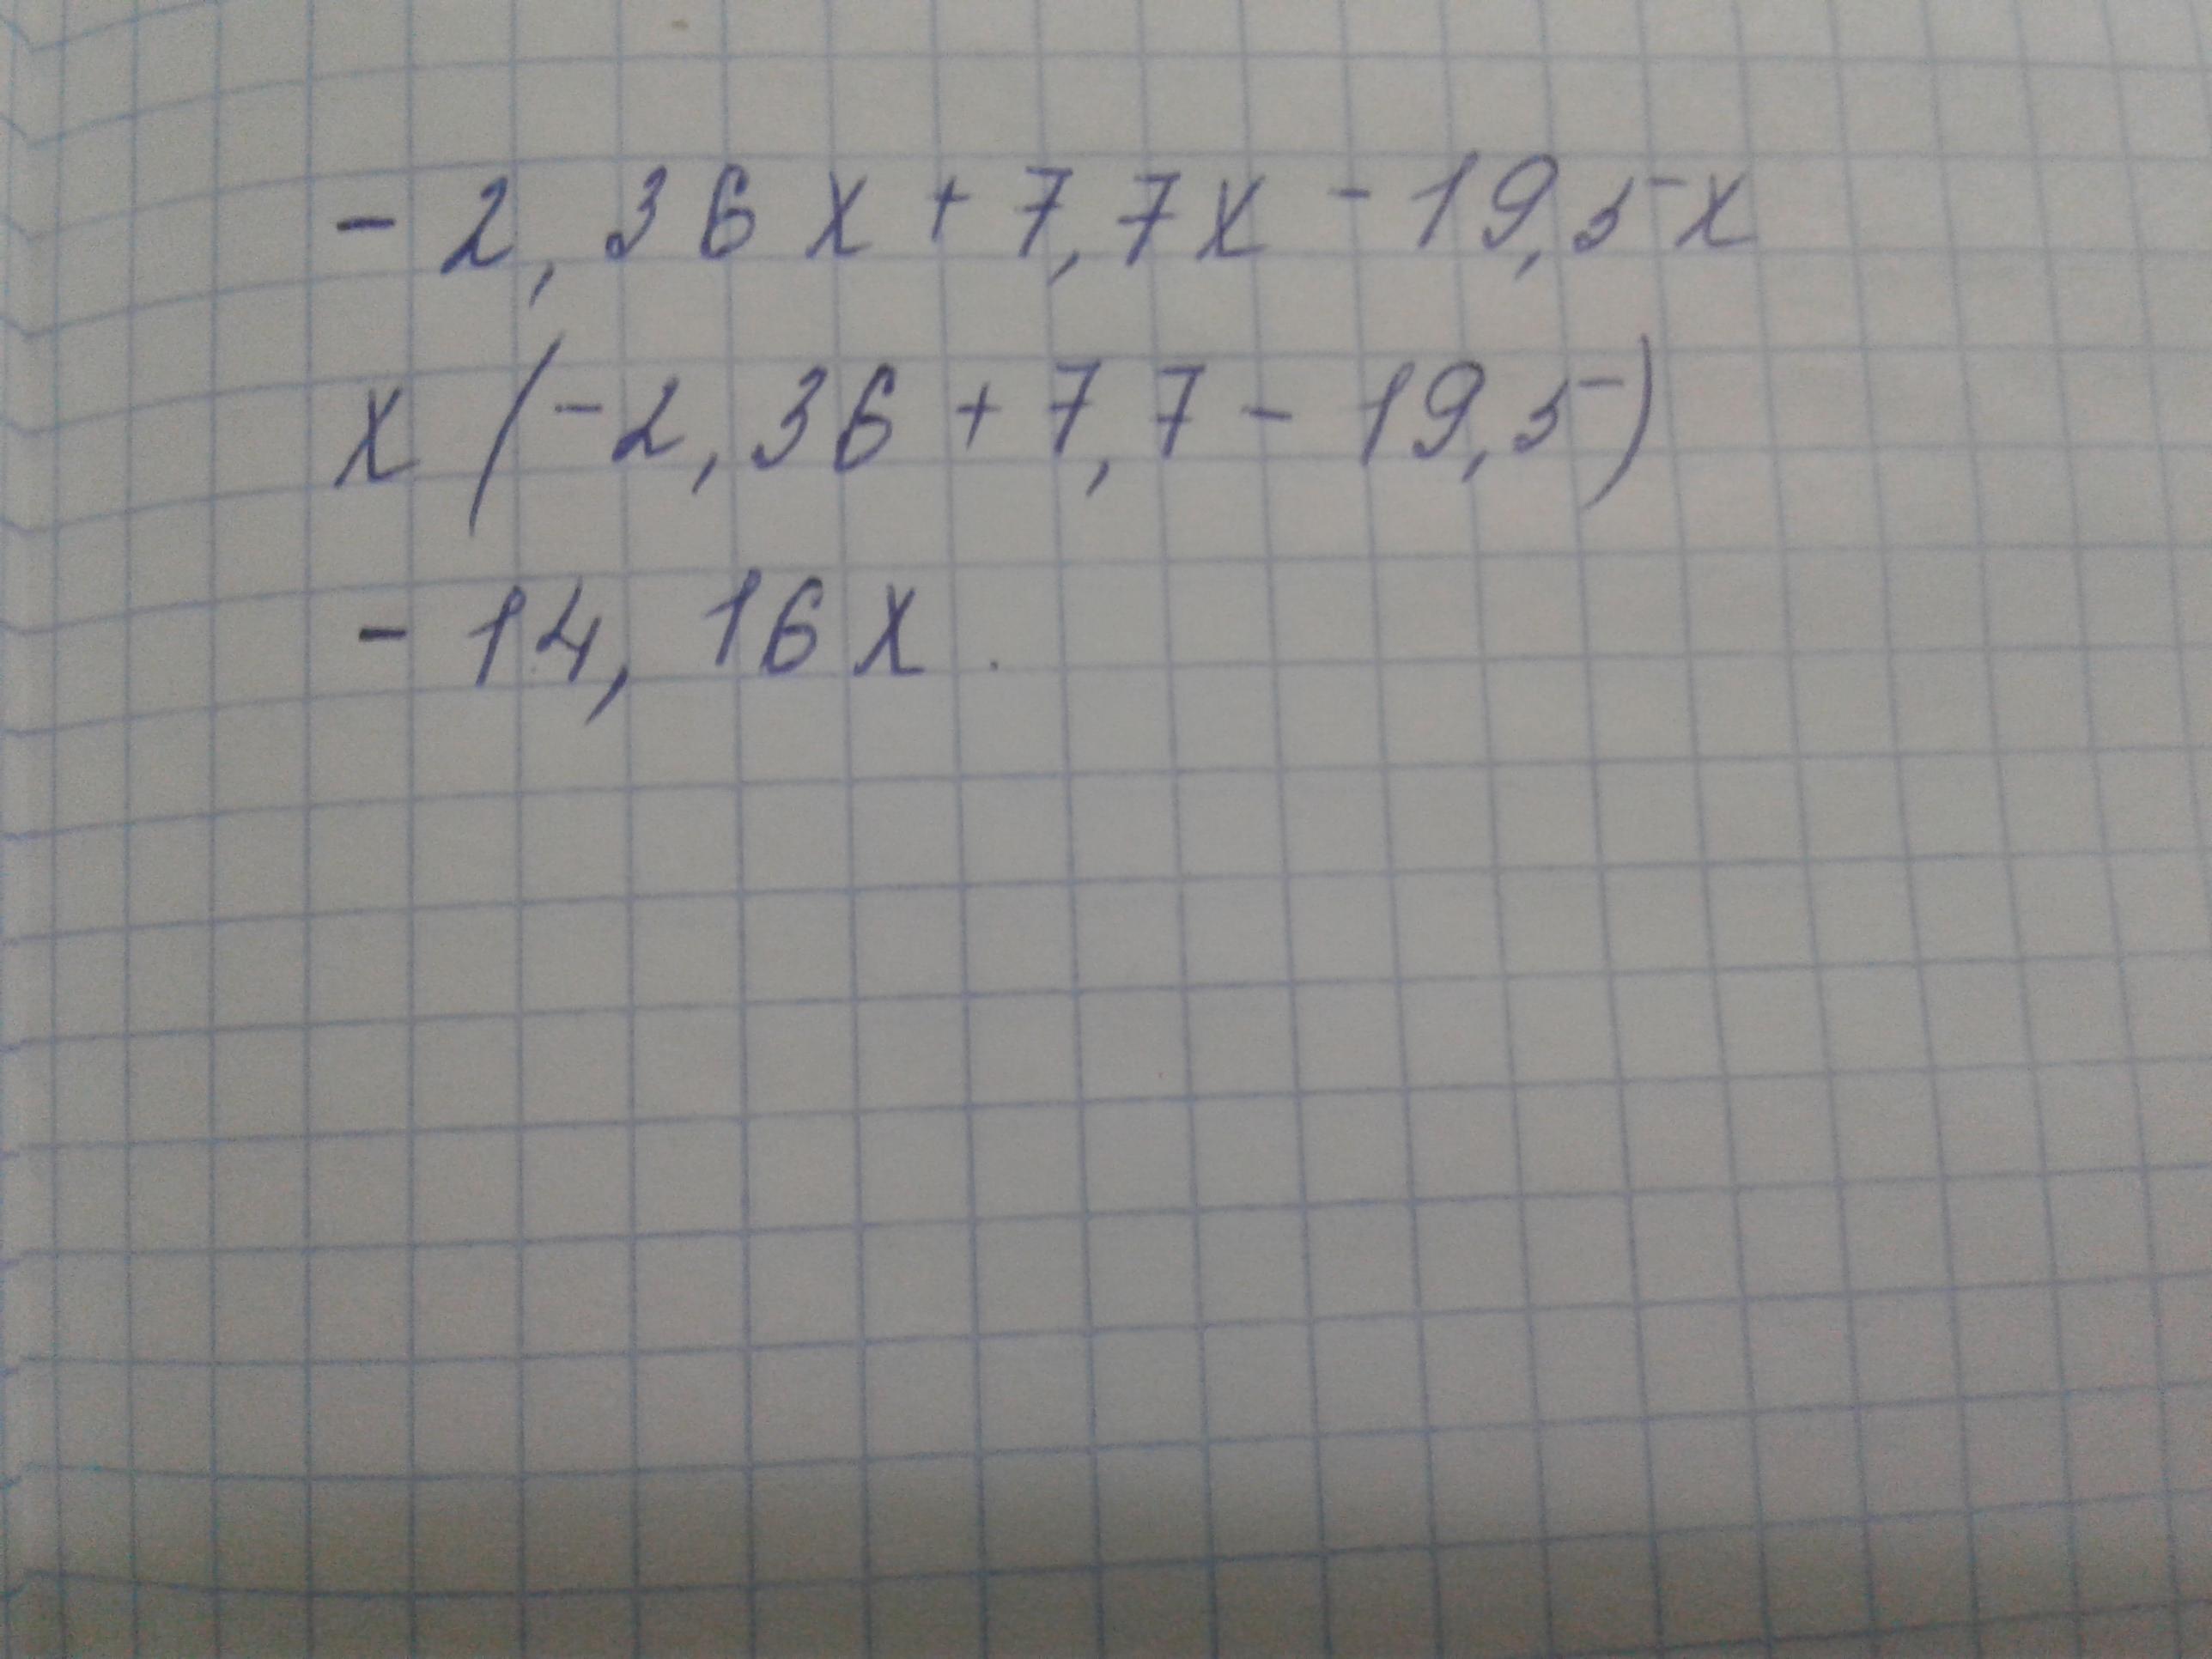 - 2,36x + 7,7x - 19,5x
x (-2,36 + 7,7 - 19,5)
- 14,16x.